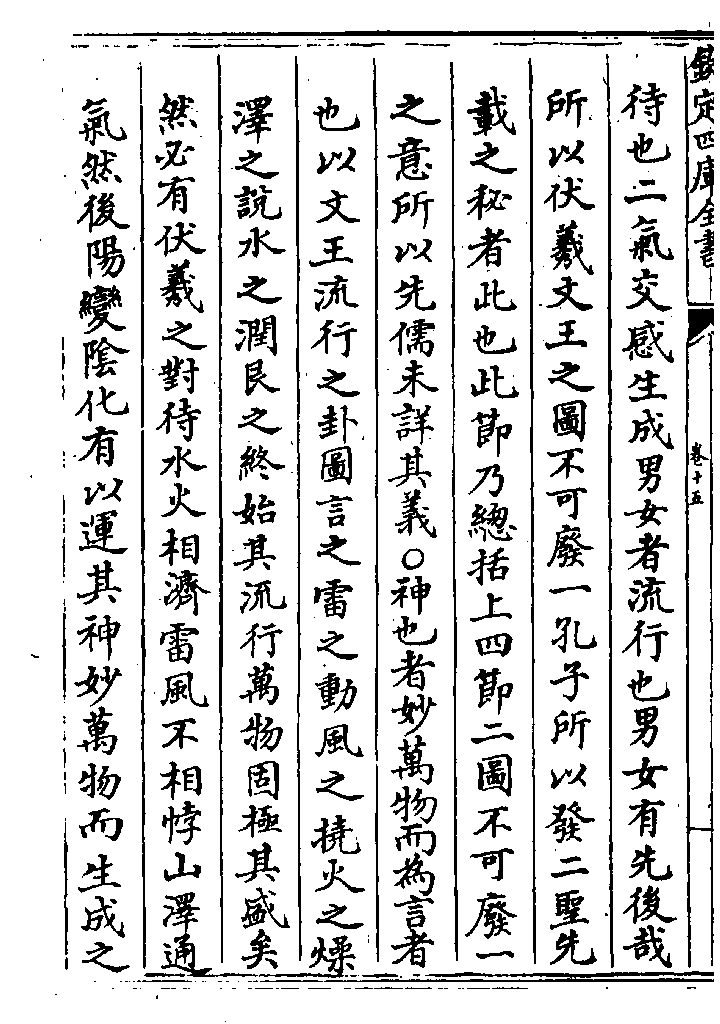 欽定四庫全書
卷十五
待也二氣交感生成男女者流行也男女有先後哉
所以伏羲文王之圖不可廢一孔子所以發二聖先
載之秘者此也此節乃總括上四節二圖不可廢一
之意所以先儒未詳其義○神也者妙萬物而為言者
也以文王流行之卦圖言之雷之動風之撓火之燥
澤之說水之潤艮之終始其流行萬物固極其盛矣
然必有伏羲之對待水火相濟雷風不相悖山澤通
氣然後陽變陰化有以運其神妙萬物而生成之